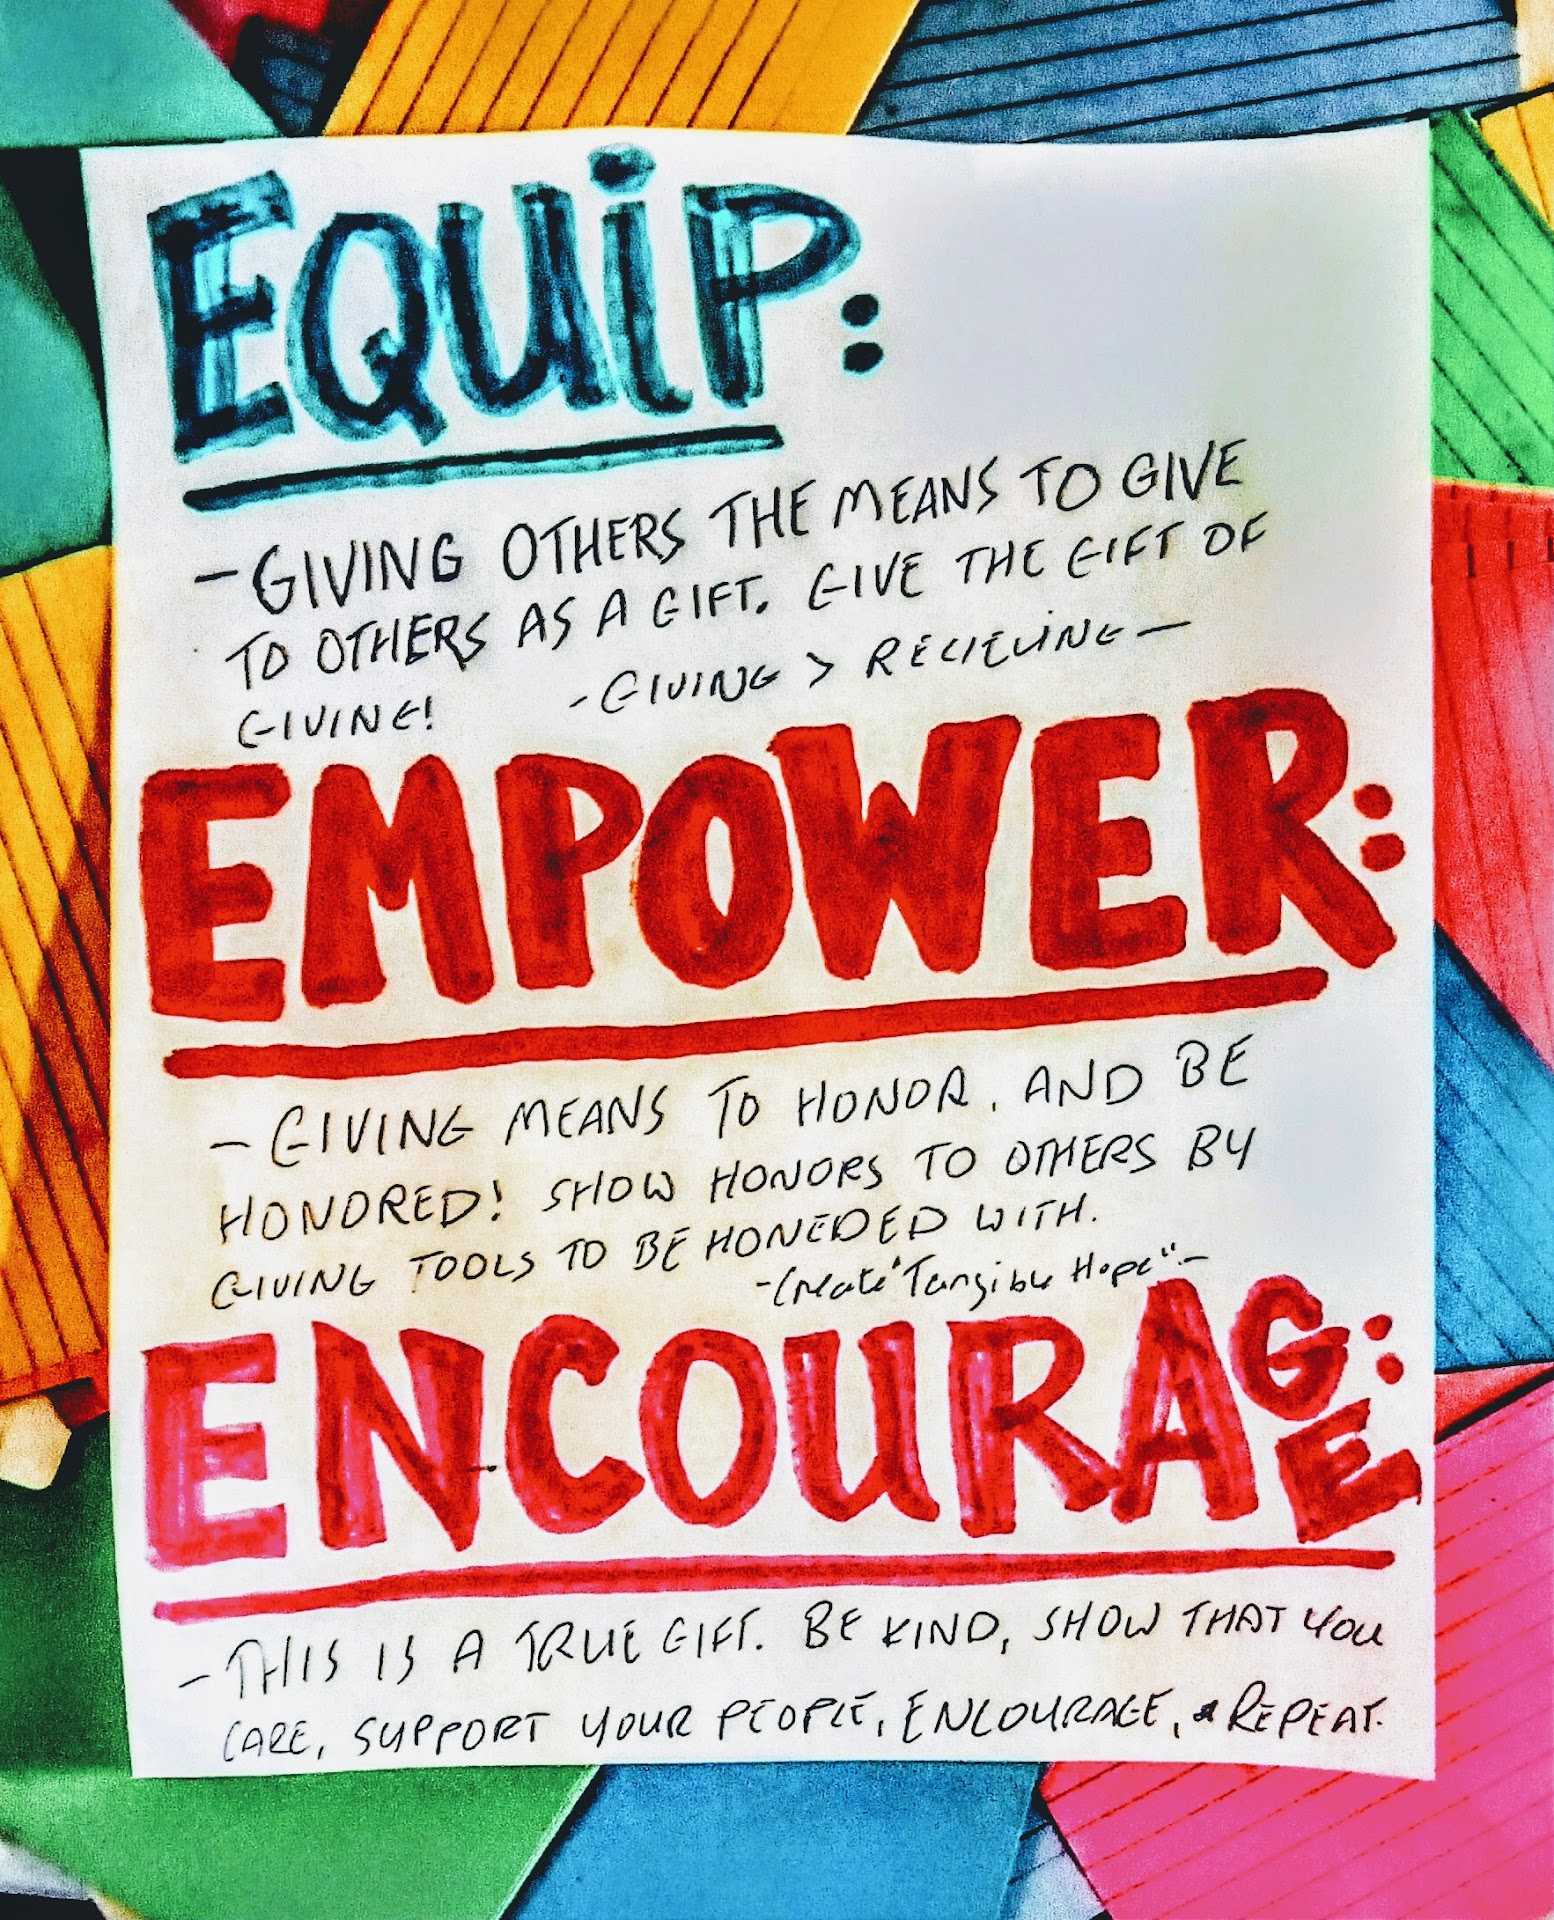 EQUiP:
- GIVING OTHERS THE MEANS TO GIVE
TO OTHERS AS A GIFT. GIVE THE GIFT OF
GIVING! - GIVING > RECIEVING -
EMPOWER:
- GIVING MEANS TO HONOR, AND BE
HONORED! SHOW HONORS TO OTHERS BY
GIVING TOOLS TO BE HONEDED WITH.
- Create "Tangible Hope" -
ENCOURAGE:
- THIS IS A TRUE GIFT. BE KIND, SHOW THAT YOU
CARE, SUPPORT YOUR PEOPLE, ENCOURAGE, & REPEAT.